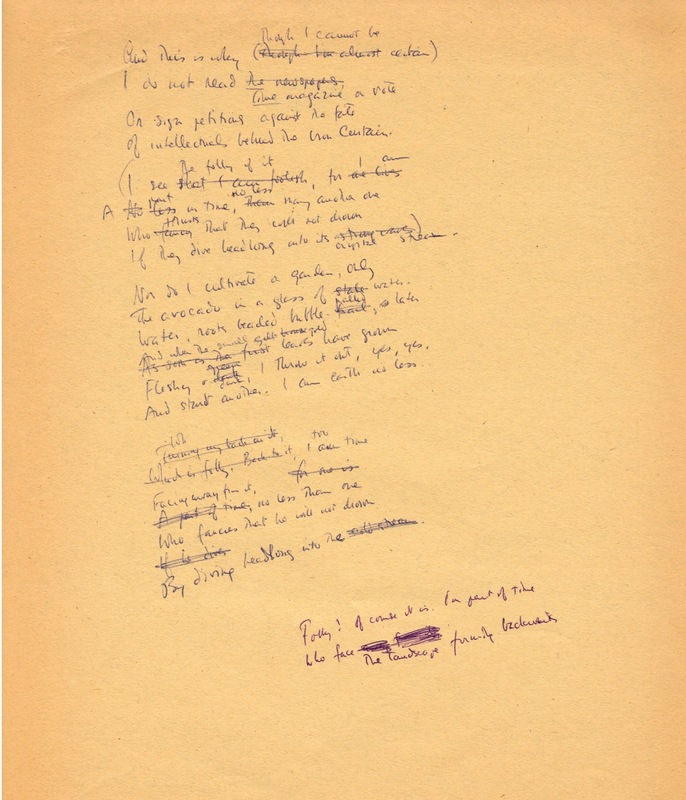 Though I cannot be
And this is why (though I'm almost certain)
I do not read the newspapers,
Time magazine or vote
Or sign petitions against the fate
of intellectuals behind the Iron Curtain.
the folly of it I am
(I see that I am foolish, for he lives
A part no less
No less in time, than many another one
thrusts
Who fancy that they will not drown
If they dive headlong into its strong waves)
crystal stream.
Nor do I cultivate a garden, only
The avocado in a glass of stale water.
Water, roots beaded bubble later
And when the small
As soon as the first leaves have grown
green
Fleshy & I throw it out, yes, yes,
And start another. I am earth no less.
Turning my back on it, too
Which is folly. Back to it, I am time
Facing away from it, for one is
A part of time, no less than one
Who fancies that he will not drown
If he dives
By diving headlong into the stream.
Folly! Of course it is. I'm part of time
Who face
the landscape backwards